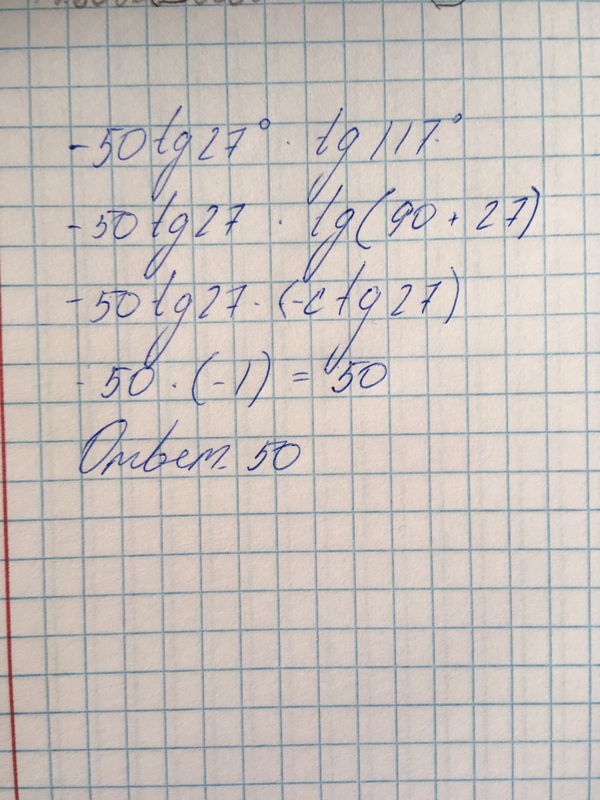 -50 tg 27° · tg 117°
-50 tg 27 · tg (90 + 27)
-50 tg 27 · (-ctg 27)
-50 · (-1) = 50
Ответ. 50